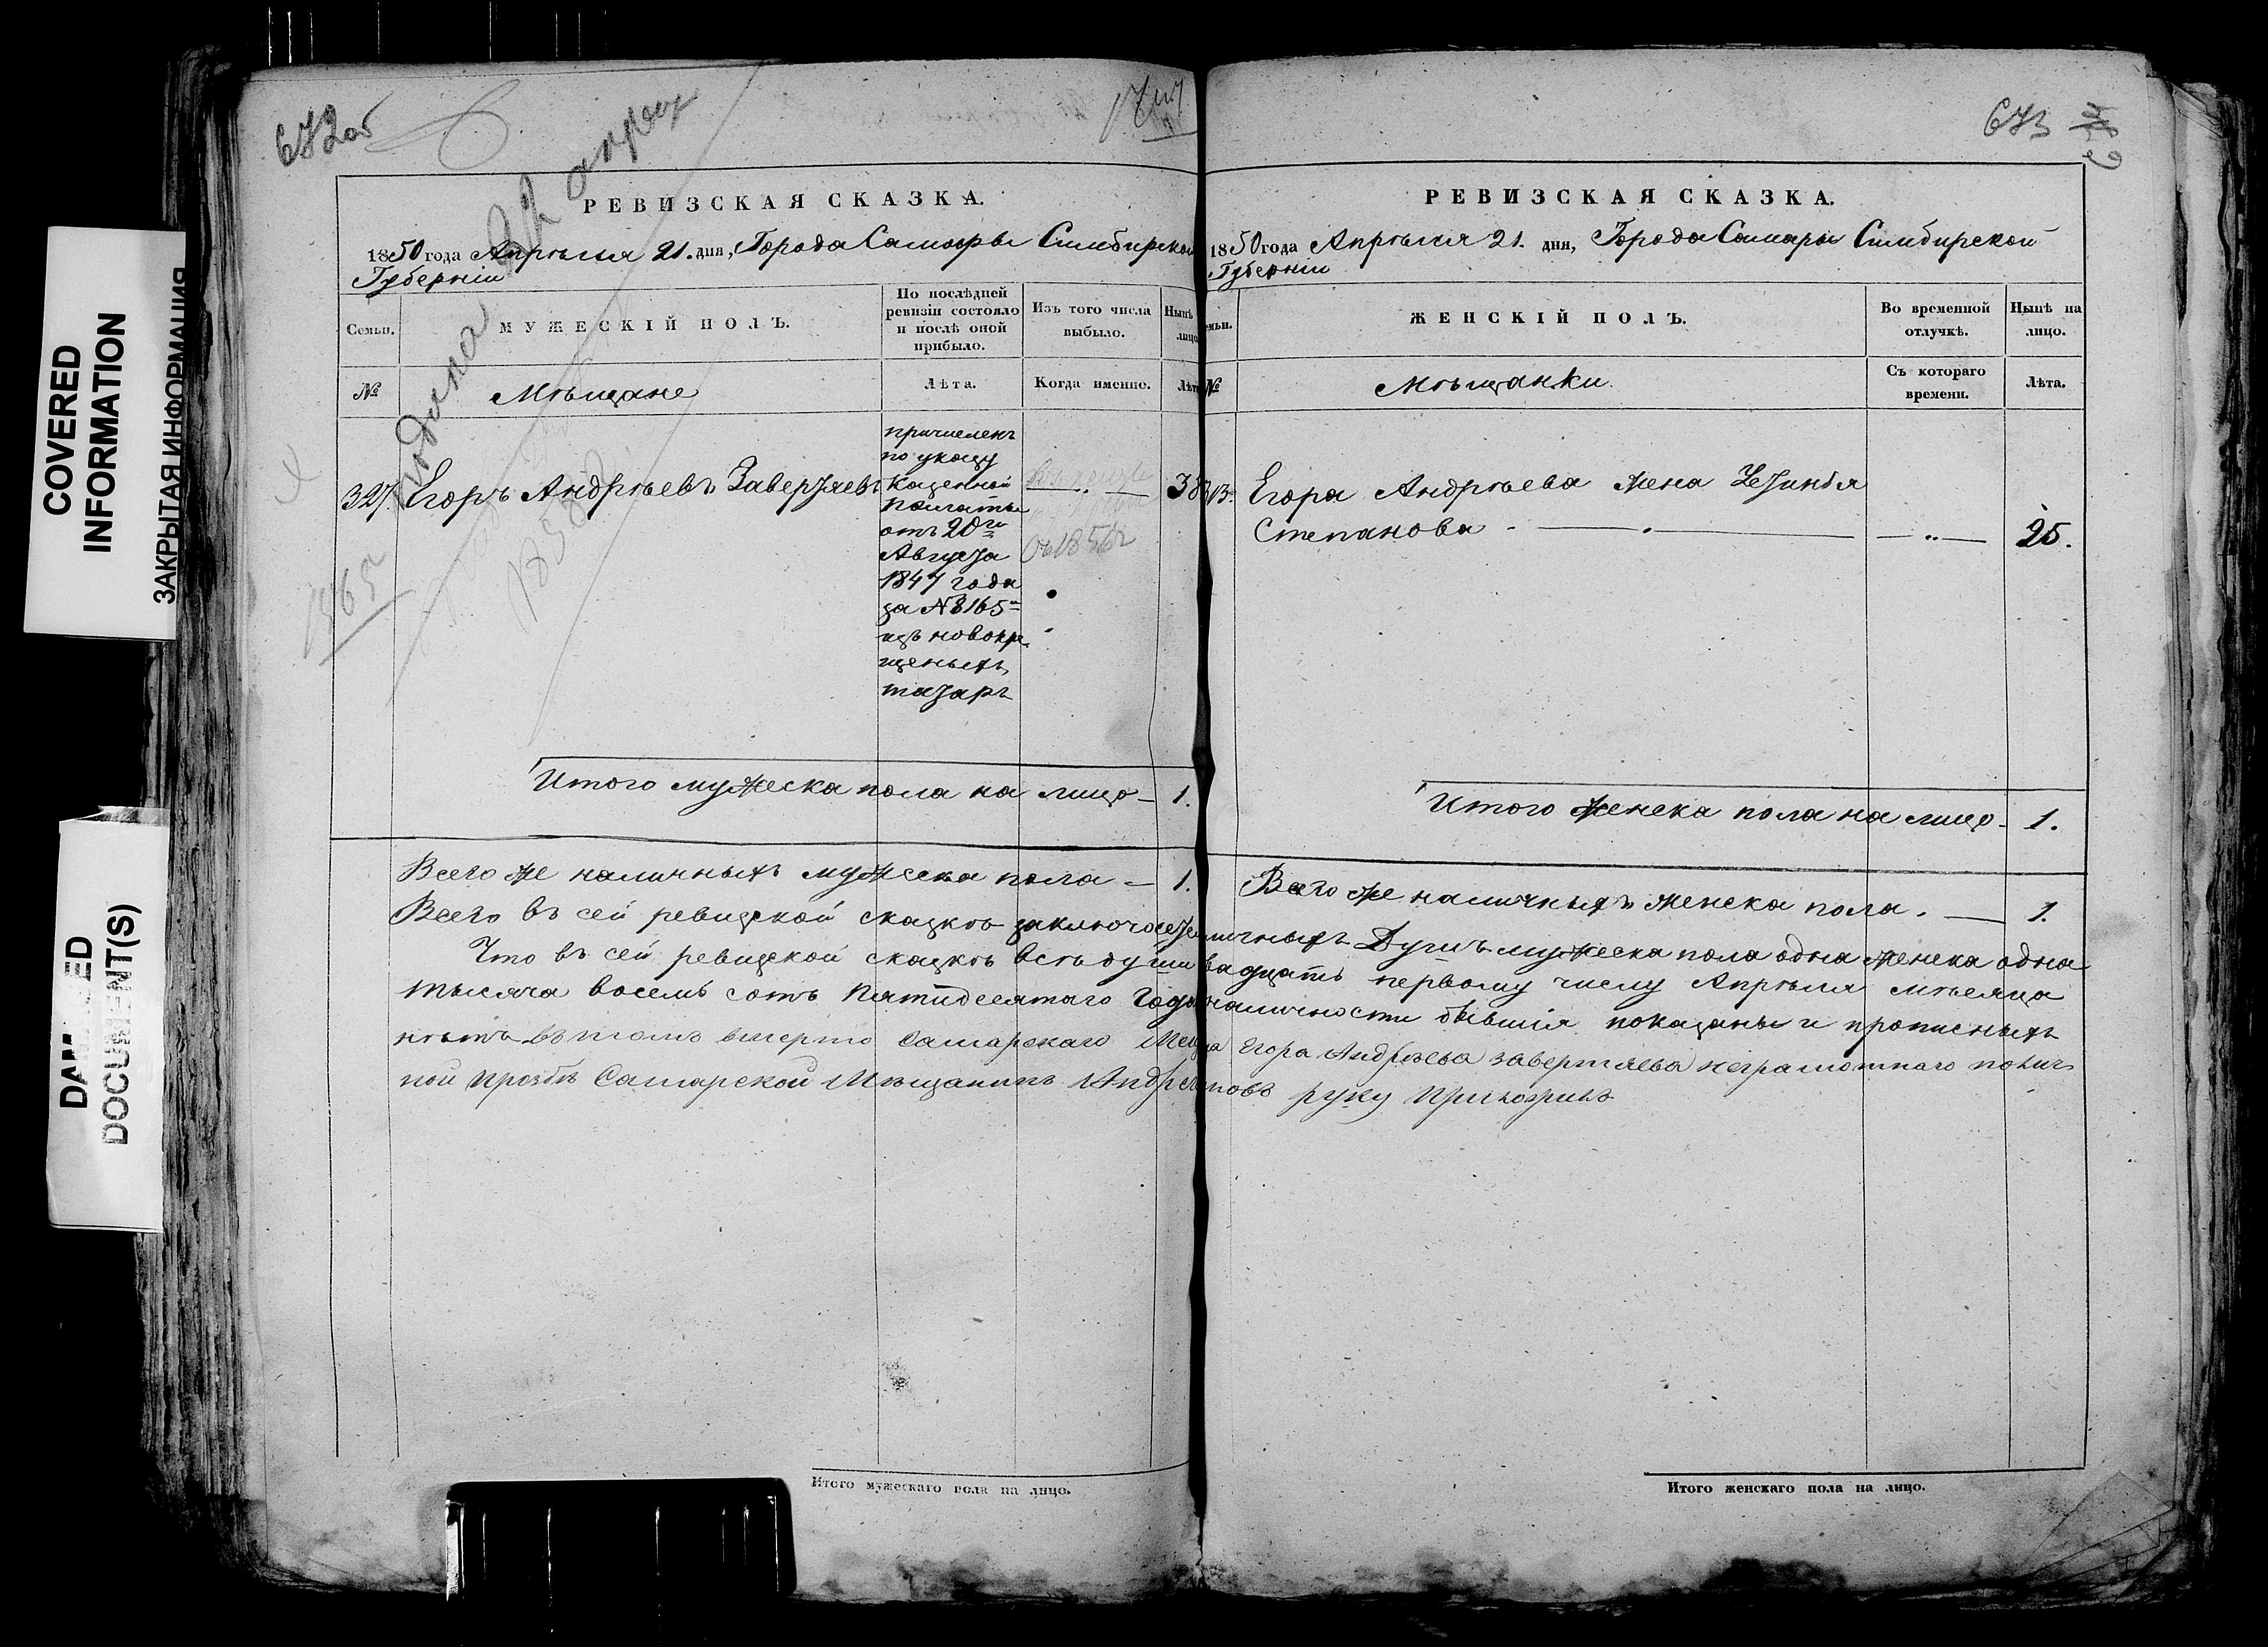 COVERED
INFORMATION
ЗАКРЫТАЯ ИНФОРМАЦИЯ
DAM ED
DOCUMENT(S)
672об
подана апрел
РЕВИЗСКАЯ СКАЗКА.
1850 года Апрѣля 21. дня, Города Самары Симбирской
Губерніи
Семьи.
МУЖЕСКІЙ ПОЛЪ.
По послѣдней
ревизіи состояло
и послѣ оной
прибыло.
Изъ того числа
выбыло.
Нынѣ
лицо
№
Мѣщане
Лѣта.
Когда именно.
Лѣта
327.
Егоръ Андрѣевъ Завертяевъ
причисленъ
по указу
Казенной
Палаты
отъ 20го
Августа
1847 года
за № 8165
изъ новокре
щеныхъ
татаръ
38
1865
Итого мужеска пола на лицо - 1.
Всего же наличныхъ мужеска пола - 1.
673
РЕВИЗСКАЯ СКАЗКА.
1850 года Апрѣля 21. дня, Города Самары Симбирской
Губерніи
емьи.
ЖЕНСКІЙ ПОЛЪ.
Во временной
отлучкѣ.
Нынѣ на
лицо.
№
Мѣщанки.
Съ котораго
времени.
Лѣта.
Егора Андрѣева жена
Степанова - — — „ — 25.
Итого женска пола на лицо - 1.
Всего же наличныхъ женска пола. — 1.
Всего въ сей ревизской сказкѣ заключается личныхъ Душъ мужеска пола одна женска одна
Что въ сей ревизской сказкѣ всѣ души вадцать первому числу Апрѣля мѣсяца
тысяча восемь сотъ пятидесятаго года наличности бывшія показаны и прописныхъ
нѣтъ въ томъ вмѣсто Самарскаго Мещ на Егора Андрѣева Завертяева неграмотнаго по лич
ной прозбѣ Самарской Мѣщанинъ Андре новъ руку приложилъ
Итого мужескаго пола на лицо.
Итого женскаго пола на лицо.